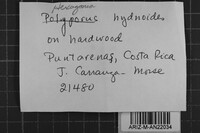 Hexagona
Polyporus hydnoides
on hardwood
Puntarenas, Costa Rica
J. Carranza - Morse
21480
ARIZ-M-AN22034